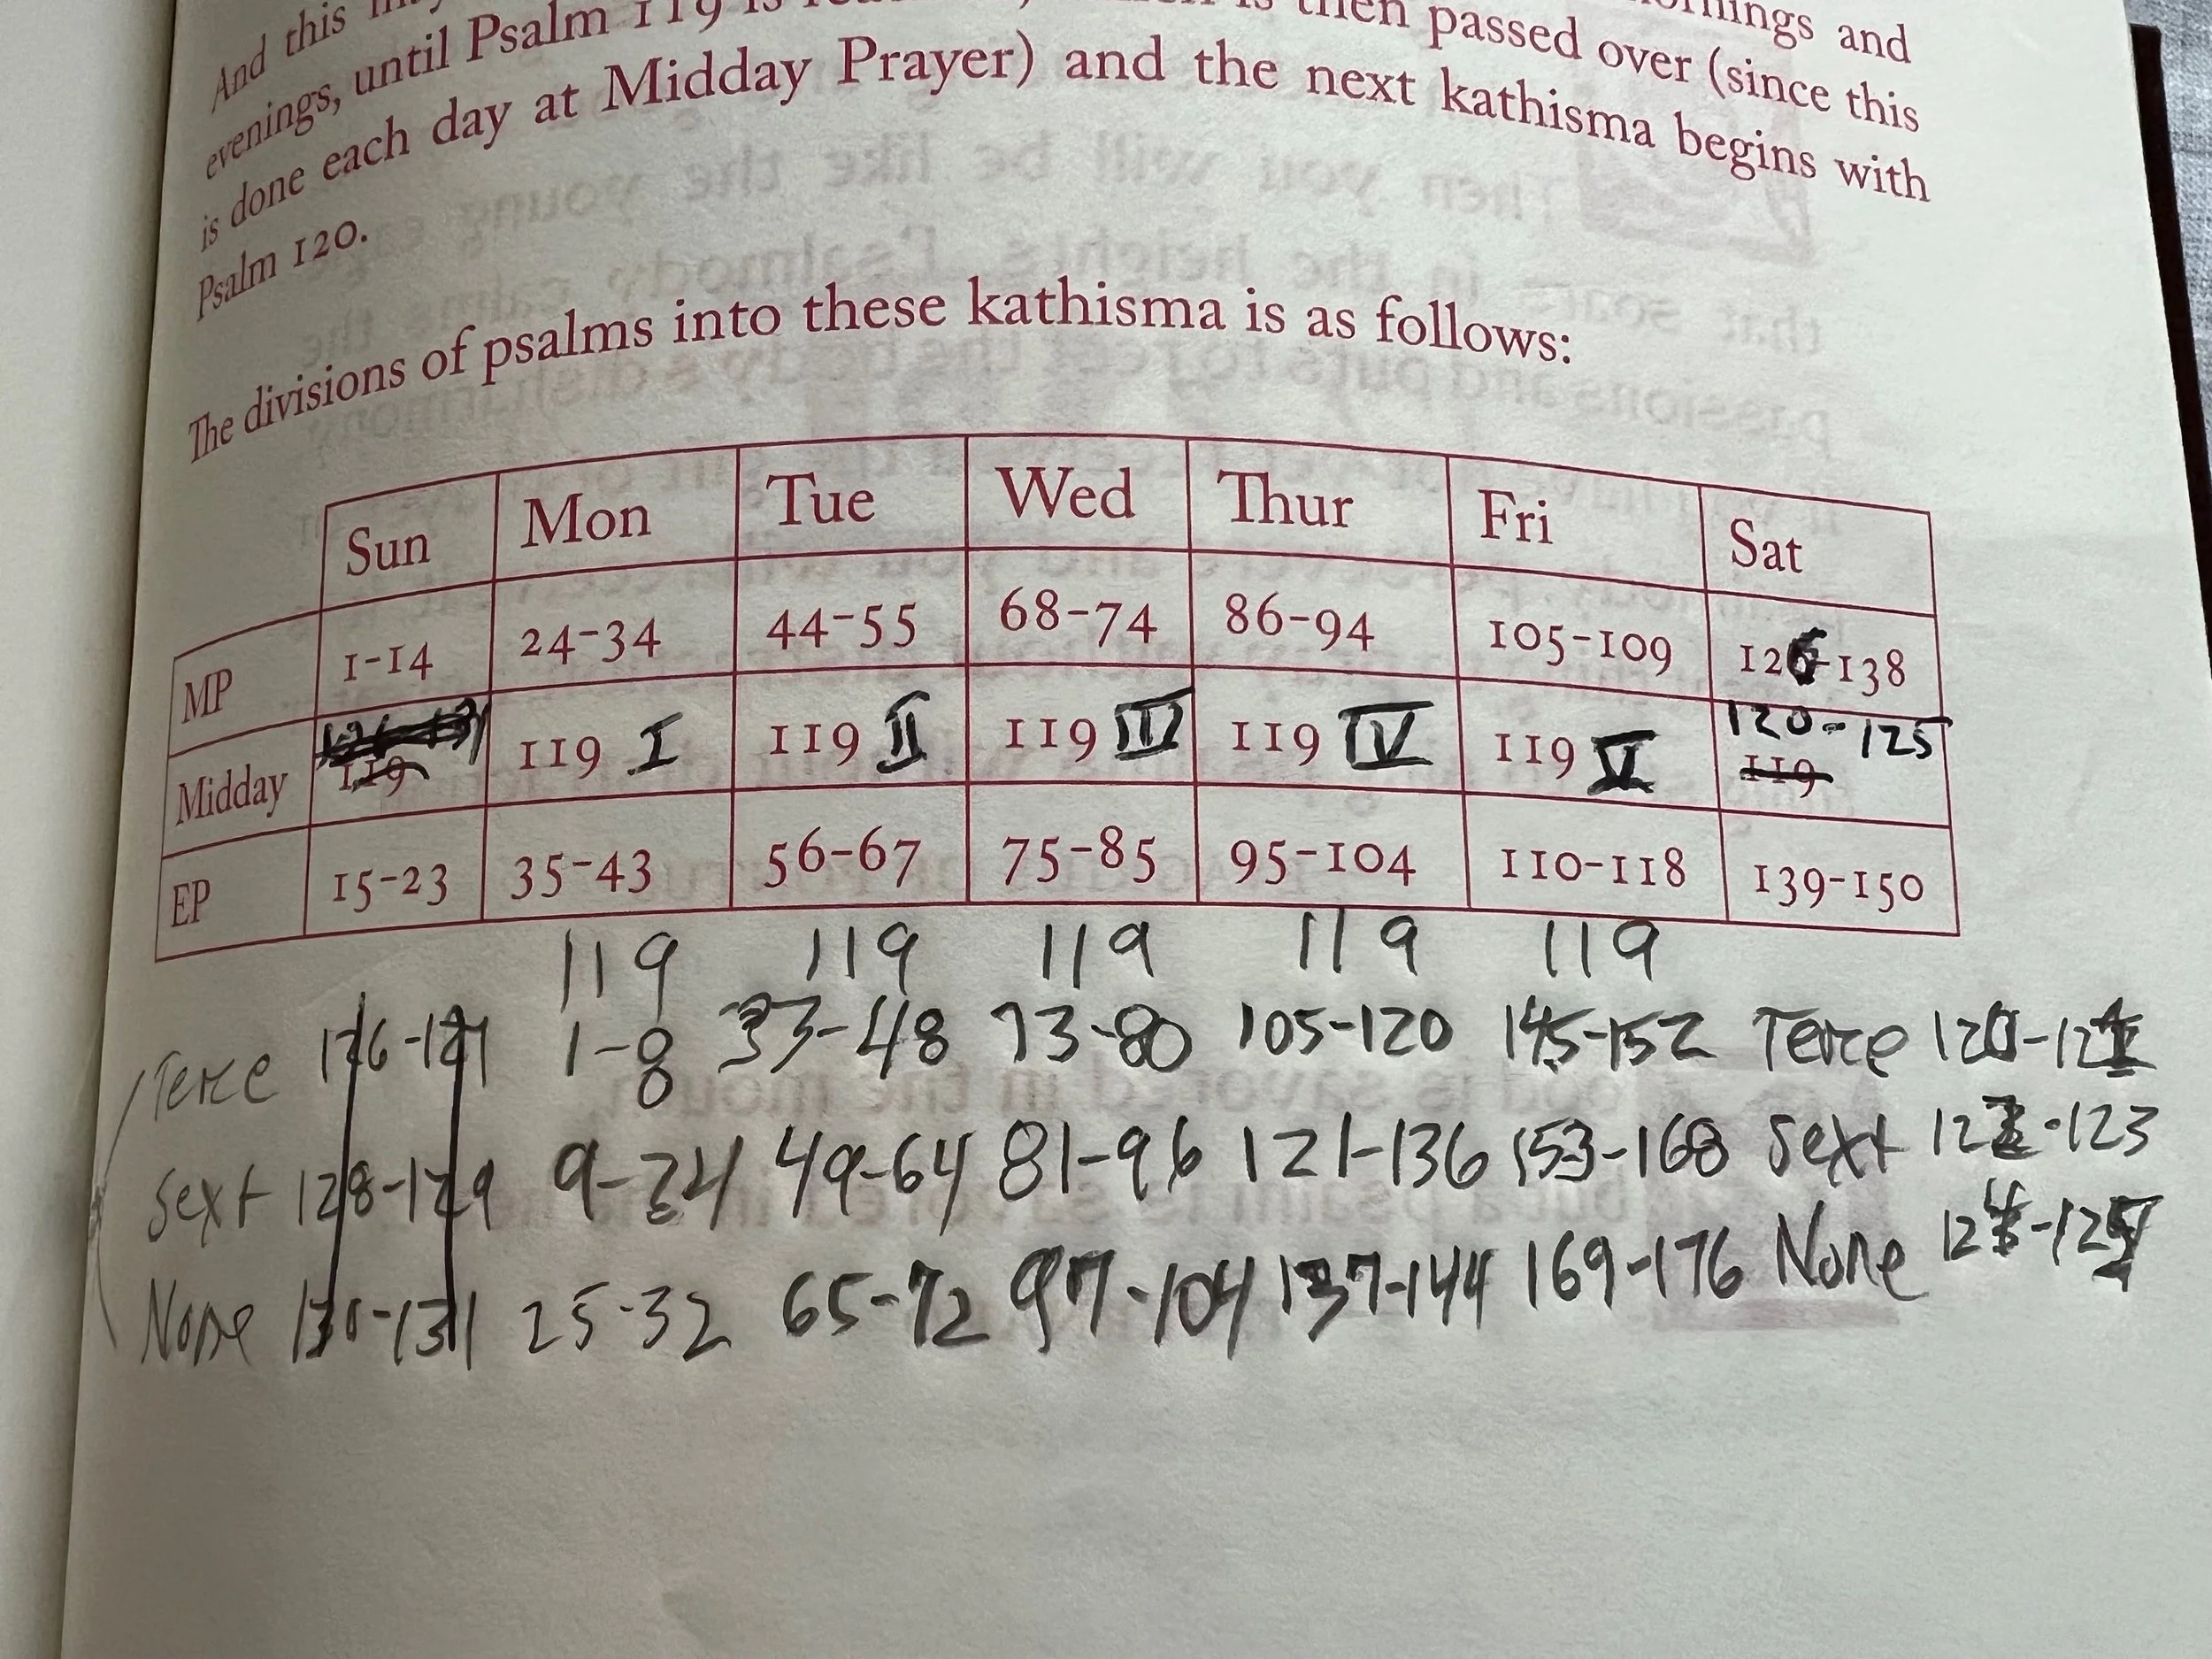 And this ornings and
evenings, until Psalm 119 is then passed over (since this
is done each day at Midday Prayer) and the next kathisma begins with
Psalm 120.
The divisions of psalms into these kathisma is as follows:
Sun Mon Tue Wed Thur Fri Sat
MP 1-14 24-34 44-55 68-74 86-94 105-109 126-138
120-125
Midday 119 119 I 119 II 119 III 119 IV 119 V 119
EP 15-23 35-43 56-67 75-85 95-104 110-118 139-150
119 119 119 119 119
Terce 126-127 1-8 33-48 73-80 105-120 145-152 Terce 120-121
Sext 128-129 9-24 49-64 81-96 121-136 153-168 Sext 122-123
None 130-131 25-32 65-72 97-104 137-144 169-176 None 124-125